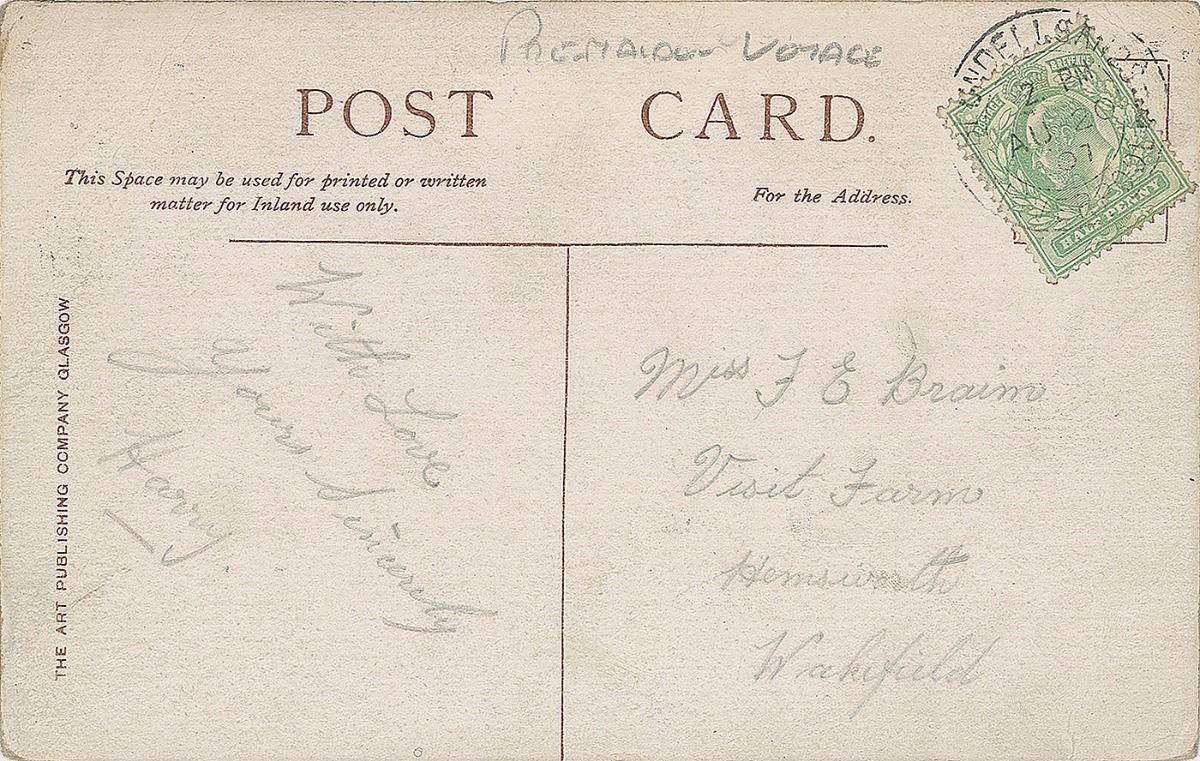 PREMAIDEN VOYAGE
POST CARD.
This Space may be used for printed or written
matter for Inland use only.
For the Address.
POSTAGE REVENUE
HALF PENNY
2 PM
AU
07
THE ART PUBLISHING COMPANY GLASGOW
With Love
yours Sincerely
Harry
Miss F E Braim
Farm
Hemsworth
Wakefield